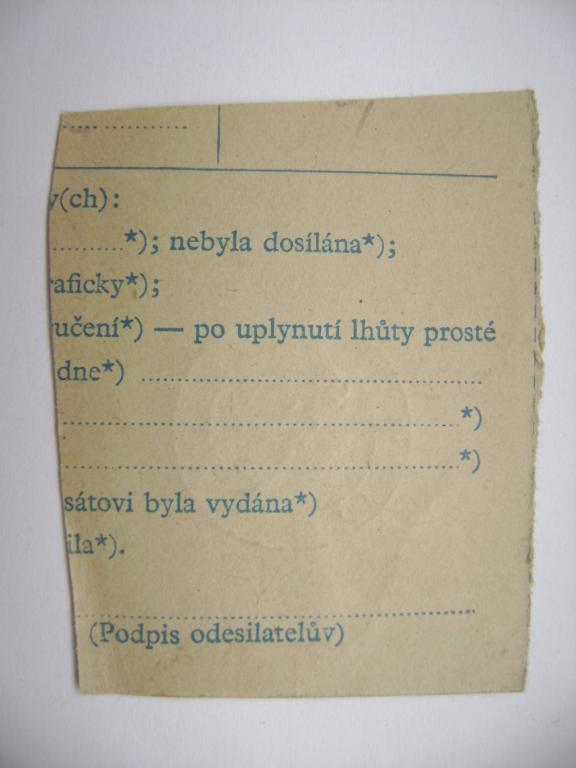 y(ch):
..........*); nebyla dosílána*);
raficky*);
učení*) — po uplynutí lhůty prosté
dne*) ..................................................
..........................................................*)
..........................................................*)
sátovi byla vydána*)
ila*).
..........................................................
(Podpis odesilatelův)